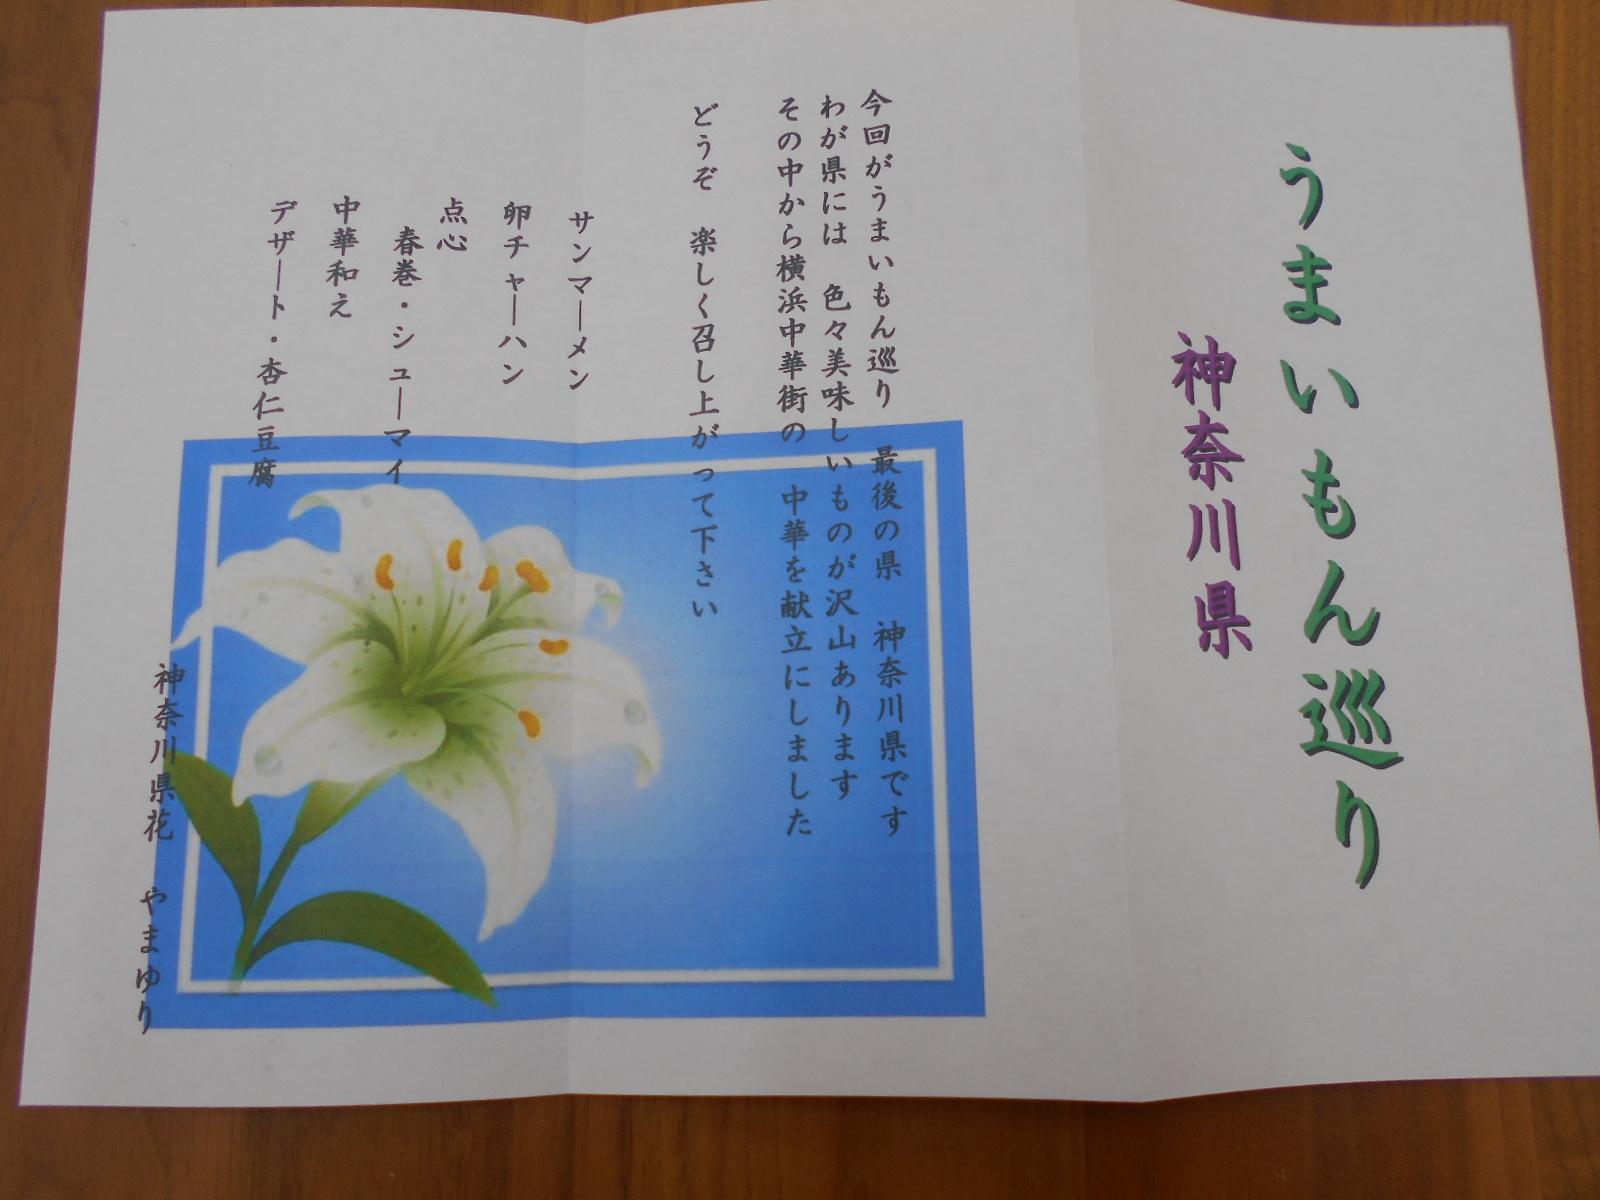 うまいもん巡り
神奈川県
今回がうまいもん巡り　最後の県　神奈川県です
わが県には　色々美味しいものが沢山あります
その中から横浜中華街の　中華を献立にしました
どうぞ　楽しく召し上がって下さい
サンマーメン
卵チャーハン
点心
春巻・シューマイ
中華和え
デザート・杏仁豆腐
神奈川県花　やまゆり